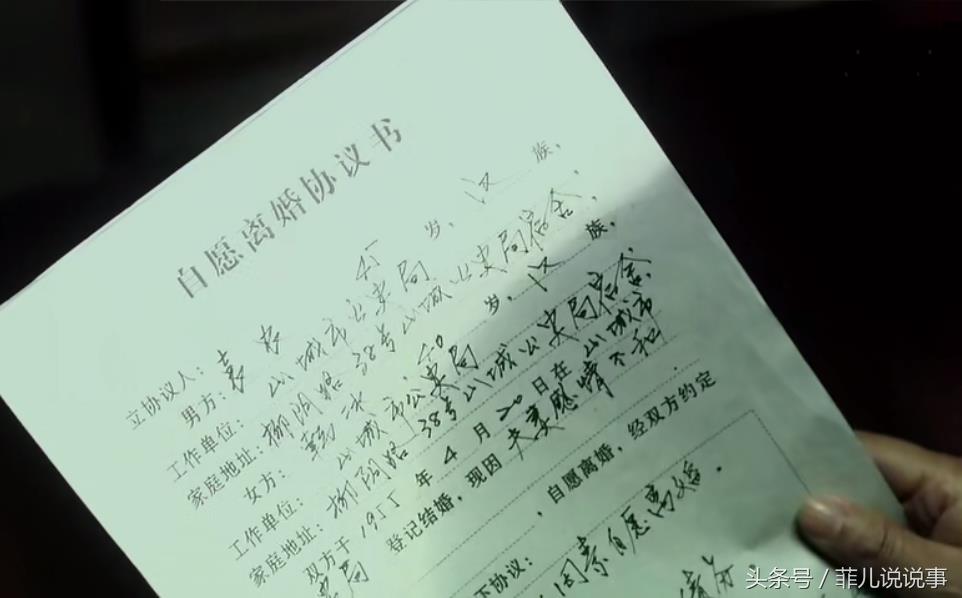 自愿离婚协议书
立协议人:
男方: 袁农 45 岁, 汉 族,
工作单位: 山城市公安局
家庭地址: 柳阴路38号山城公安局宿舍,
女方: 韩冰 40 岁, 汉 族,
工作单位: 山城市公安局
家庭地址: 柳阴路38号山城公安局宿舍,
双方于 1955 年 4 月 20 日在 山城市
登记结婚,现因 夫妻感情不和
,自愿离婚,经双方约定
下协议:
自愿离婚.
头条号 / 菲儿说说事